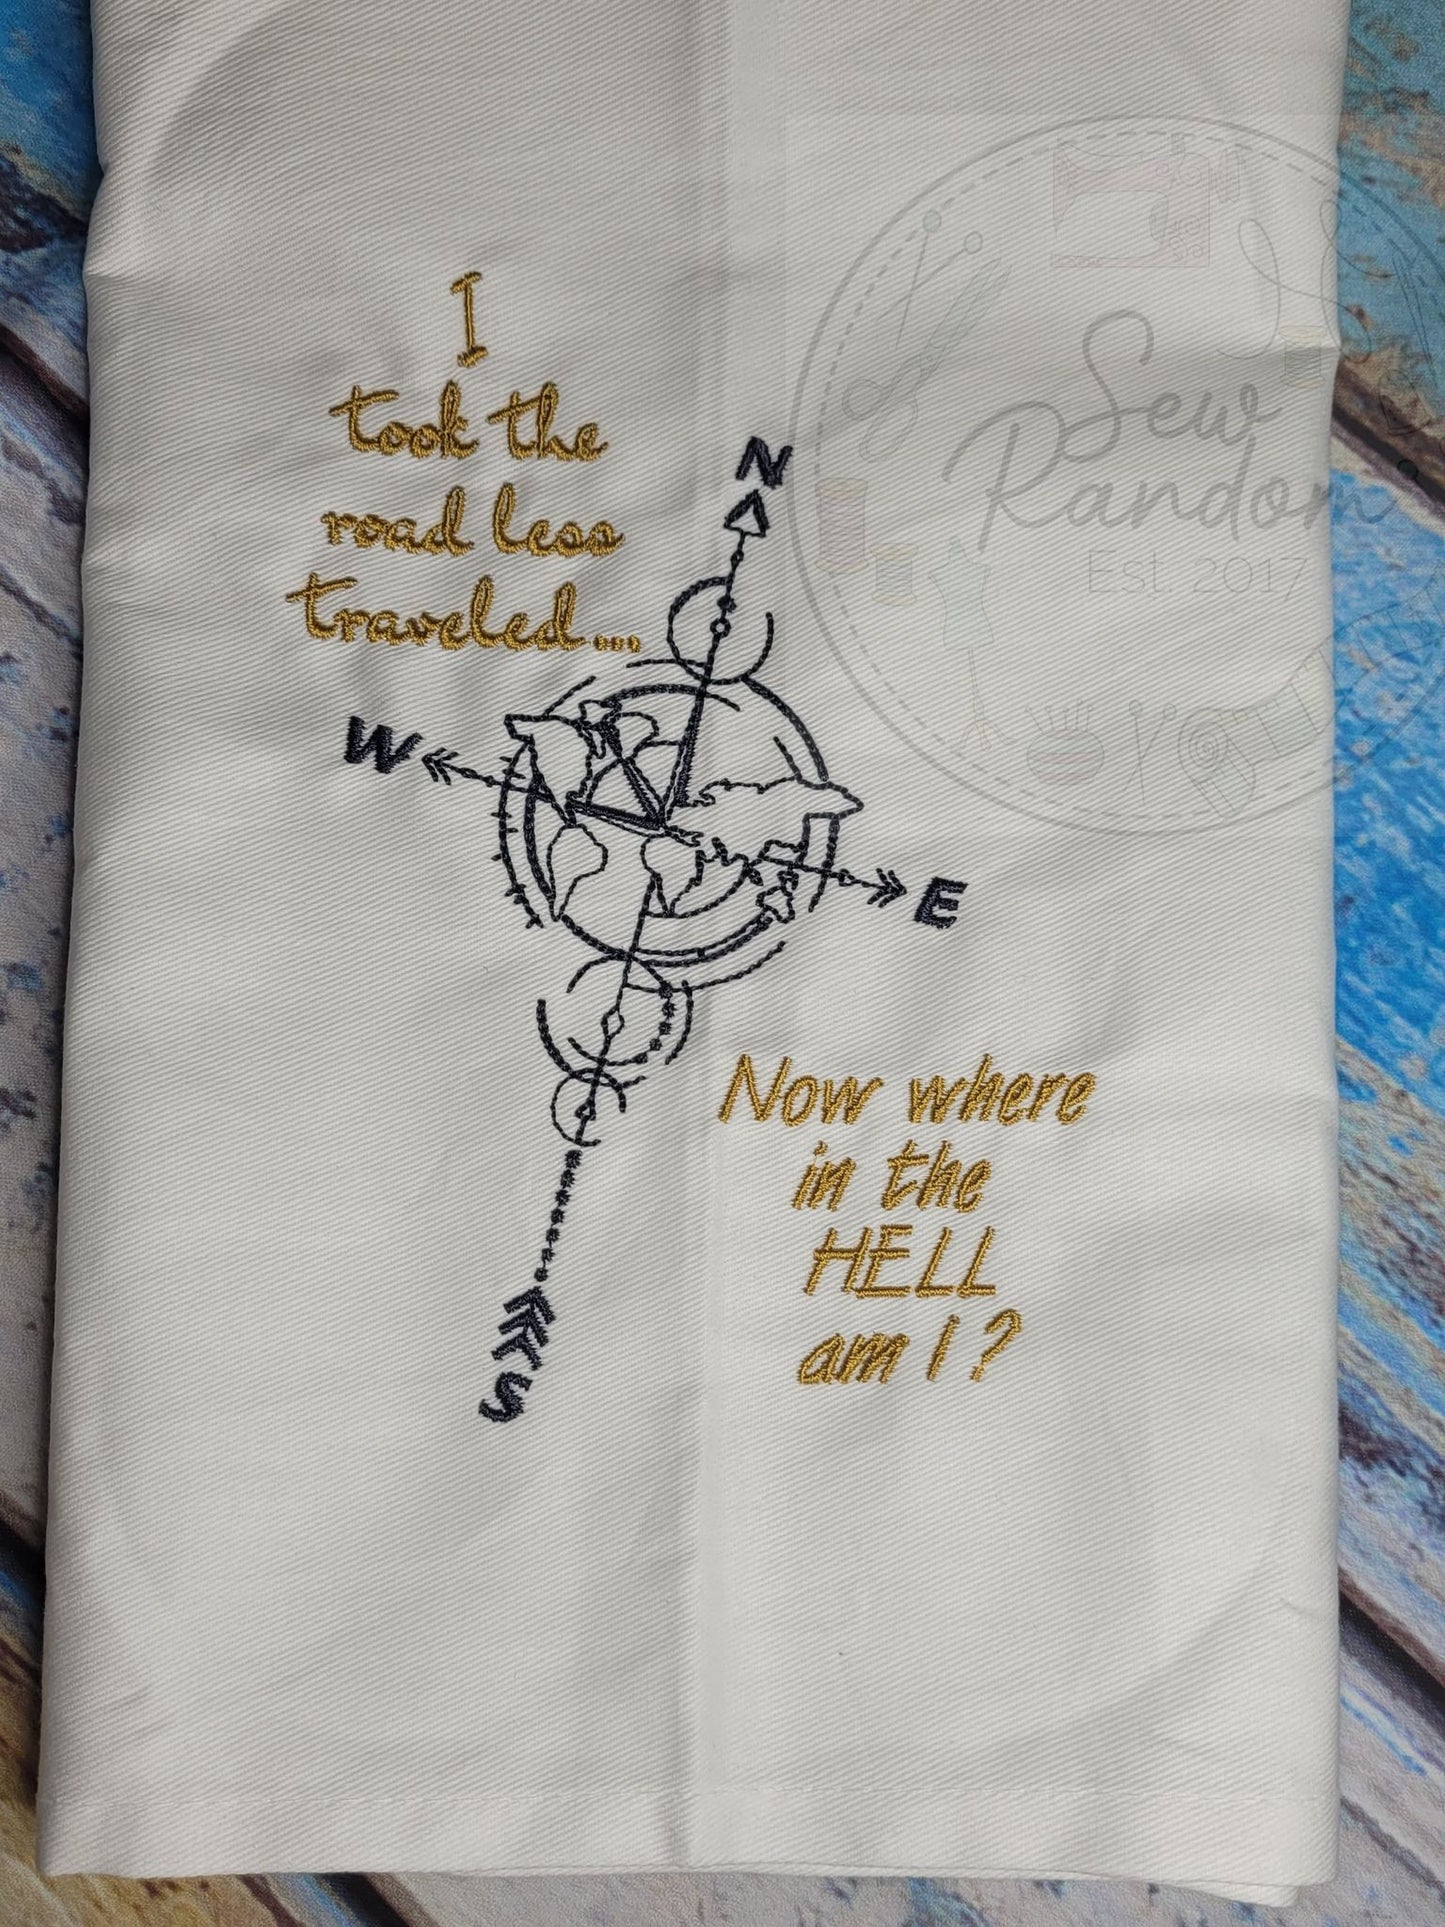 I
took the
road less
traveled...
N
W
E
S
Now where
in the
HELL
am I?
Sew
Random
Est. 2017